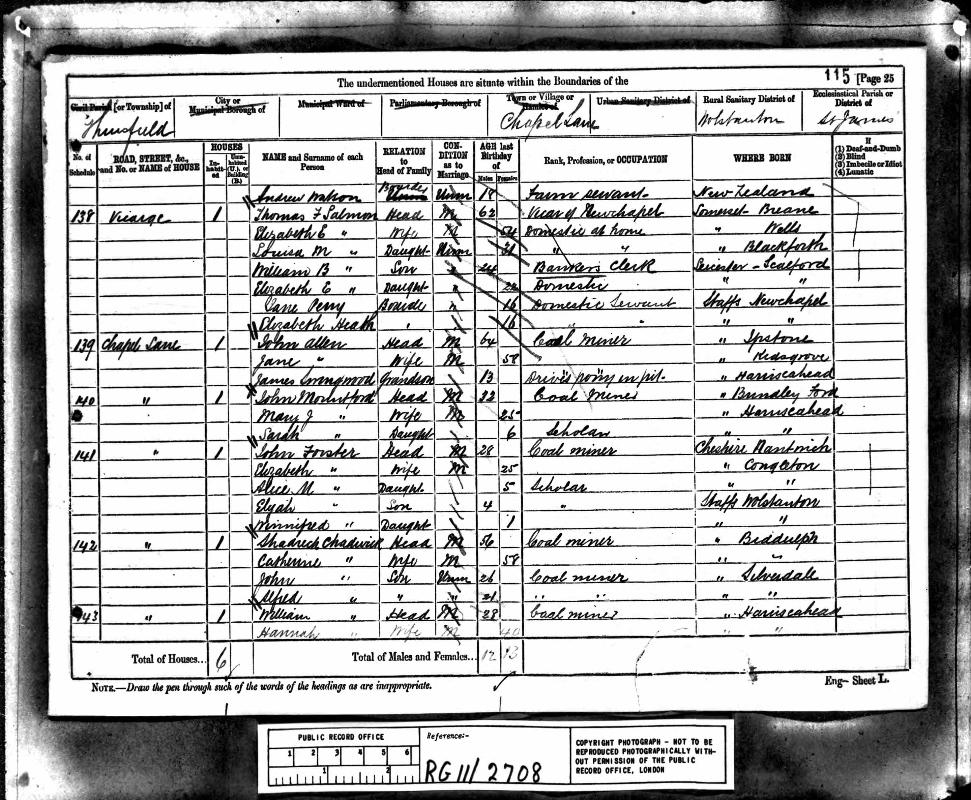 115 [Page 25
The undermentioned Houses are situate within the Boundaries of the
Civil Parish [or Township] of
City or Municipal Borough of
Municipal Ward of
Parliamentary Borough of
Town or Village or Hamlet of
Urban Sanitary District of
Rural Sanitary District of
Ecclesiastical Parish or District of
Thursfield Chapel Lane Wolstanton St James
No. of Schedule
ROAD, STREET, &c., and No. or NAME of HOUSE
HOUSES
Inhabited
Uninhabited (U.), or Building (B.)
NAME and Surname of each Person
RELATION to Head of Family
CONDITION as to Marriage
AGE last Birthday of
Males Females
Rank, Profession, or OCCUPATION
WHERE BORN
If
(1) Deaf-and-Dumb
(2) Blind
(3) Imbecile or Idiot
(4) Lunatic
Andrew Watson Boarder Unm 18 Farm servant New Zealand
138 Vicarge 1 Thomas F Salmon Head M 62 Vicar of Newchapel Somerset - Breane
Elizabeth E " Wife M 54 Domestic at home " Wells
Louisa M " Daught Unm 31 " " " Blackforth
William B " Son " 24 Bankers Clerk Leicester - Scalford
Elizabeth E " Daught " 22 Domestic " "
Jane Perry Boarde " 16 Domestic Servant Staffs Newchapel
Elizabeth Heath " " 16 " " " "
139 Chapel Lane 1 John Allen Head M 64 Coal Miner " Ipstone
Jane " Wife M 58 " Kidsgrove
James Grandson 13 Drives pony in pit " Harriseahead
140 " 1 John Mountford Head M 32 Coal Miner " Brindley Ford
Mary J " Wife M 25 " Harriseahead
Sarah " Daught 6 Scholar " "
141 " 1 John Forster Head M 28 Coal miner Cheshire Nantwich
Elizabeth " Wife M 25 " Congleton
Alice M " Daught 5 Scholar " "
Elijah " Son 4 " Staffs Wolstanton
Winnifred " Daught 1 " "
142 " 1 Shadrech Chadwick Head M 56 Coal miner " Biddulph
Catherine " Wife M 58 " "
John " Son Unm 26 Coal miner " Silverdall
Alfred " " " 21 " " " "
143 " 1 William " Head M 28 Coal miner " Harriseahead
Hannah " Wife M 40 " "
Total of Houses... 6 Total of Males and Females... 12 13
NOTE.—Draw the pen through such of the words of the headings as are inappropriate.
Eng— Sheet L.
PUBLIC RECORD OFFICE
1 2 3 4 5 6
1 2
Reference:-
RG 11/2708
COPYRIGHT PHOTOGRAPH - NOT TO BE
REPRODUCED PHOTOGRAPHICALLY WITH-
OUT PERMISSION OF THE PUBLIC
RECORD OFFICE, LONDON